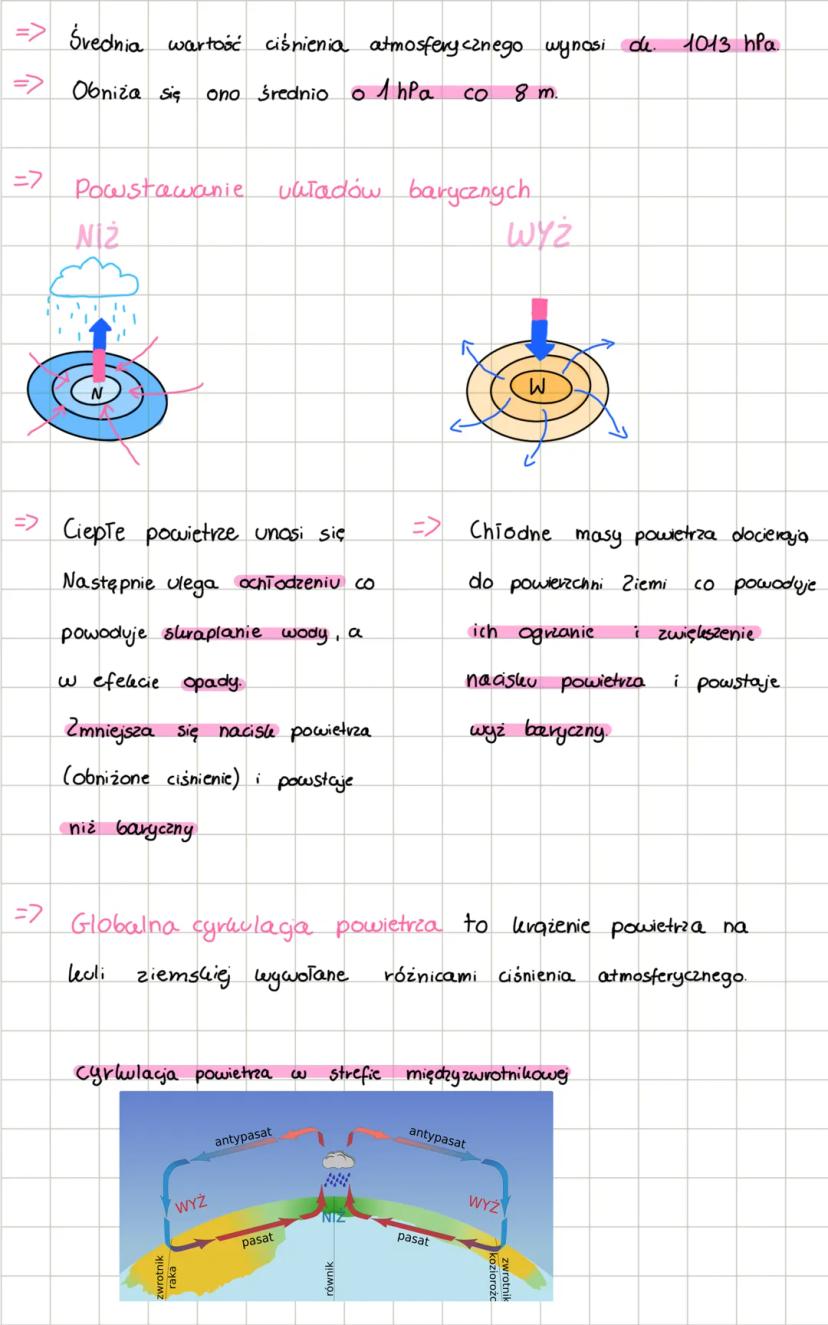 => Średnia wartość ciśnienia atmosferycznego wynosi ok. 1013 hPa.
=> Obniża się ono średnio o 1 hPa co 8 m.
=> Powstawanie układów barycznych
NIŻ
WYŻ
N
W
=> Ciepłe powietrze unosi się
Następnie ulega ochłodzeniu co
powoduje skraplanie wody, a
w efekcie opady.
Zmniejsza się nacisk powietrza
(obniżone ciśnienie) i powstaje
niż baryczny
=> Chłodne masy powietrza docierają
do powierzchni Ziemi co powoduje
ich ogrzanie i zwiększenie
nacisku powietrza i powstaje
wyż baryczny.
=> Globalna cyrkulacja powietrza to krążenie powietrza na
kuli ziemskiej wywołane różnicami ciśnienia atmosferycznego.
cyrkulacja powietrza w strefie międzyzwrotnikowej
antypasat
antypasat
WYŻ
WYŻ
NIŻ
pasat
pasat
zwrotnik
raka
równik
zwrotnik
koziorożc